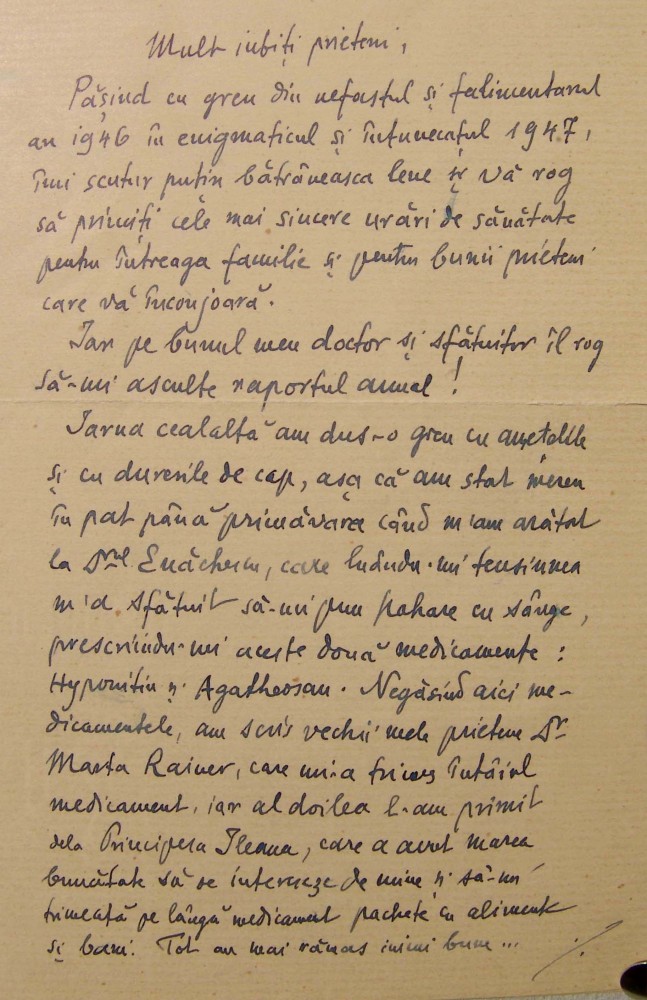 Mult iubiți prieteni,
Pășind cu greu din nefastul și falimentarul
an 1946 în enigmaticul și întunecatul 1947,
îmi scutur puțin bătrâneasca lene și vă rog
să primiți cele mai sincere urări de sănătate
pentru întreaga familie și pentru bunii prieteni
care vă înconjoară.
Iar pe bunul meu doctor și sfătuitor îl rog
să-mi asculte raportul anual!
Iarna cealaltă am dus-o greu cu amețelile
și cu durerile de cap, așa că am stat mereu
în pat până primăvara când m'am arătat
la Drul Enăchescu, care luându-mi tensiunea
m'a sfătuit să-mi pun pahare cu sânge,
prescriindu-mi aceste două medicamente:
Hyponitin și Agatheosan. Negăsind aici me-
dicamentele, am scris vechii mele prietene Dr
Marta Rainer, care mi-a trimes întâiul
medicament, iar al doilea l-am primit
dela Principesa Ileana, care a avut marea
bunătate să se intereseze de mine și să-mi
trimeată pe lângă medicament pachete cu alimente
și bani. Tot au mai rămas inimi bune... ./.